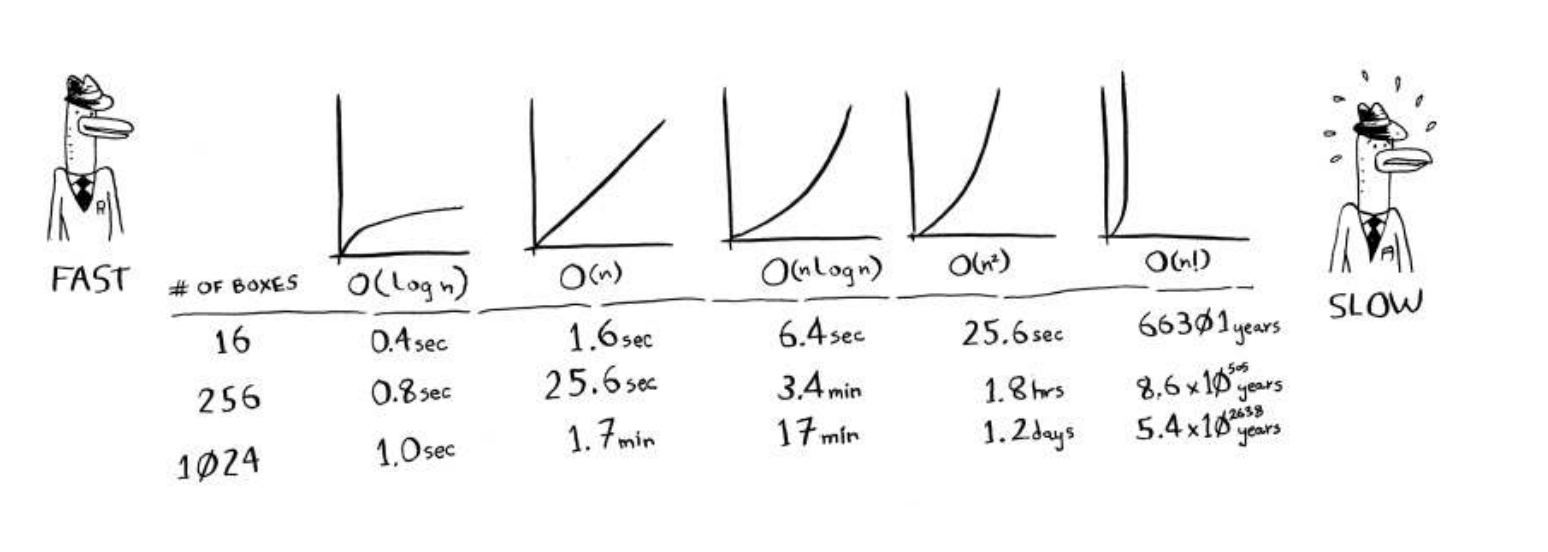 FAST
# OF BOXES O(log n) O(n) O(n log n) O(n²) O(n!)
SLOW
16 0.4 sec 1.6 sec 6.4 sec 25.6 sec 663Ø1 years
256 0.8 sec 25.6 sec 3.4 min 1.8 hrs 8.6 x 1Ø⁵⁰⁵ years
1Ø24 1.0 sec 1.7 min 17 min 1.2 days 5.4 x 1Ø²⁶³⁸ years
R
A